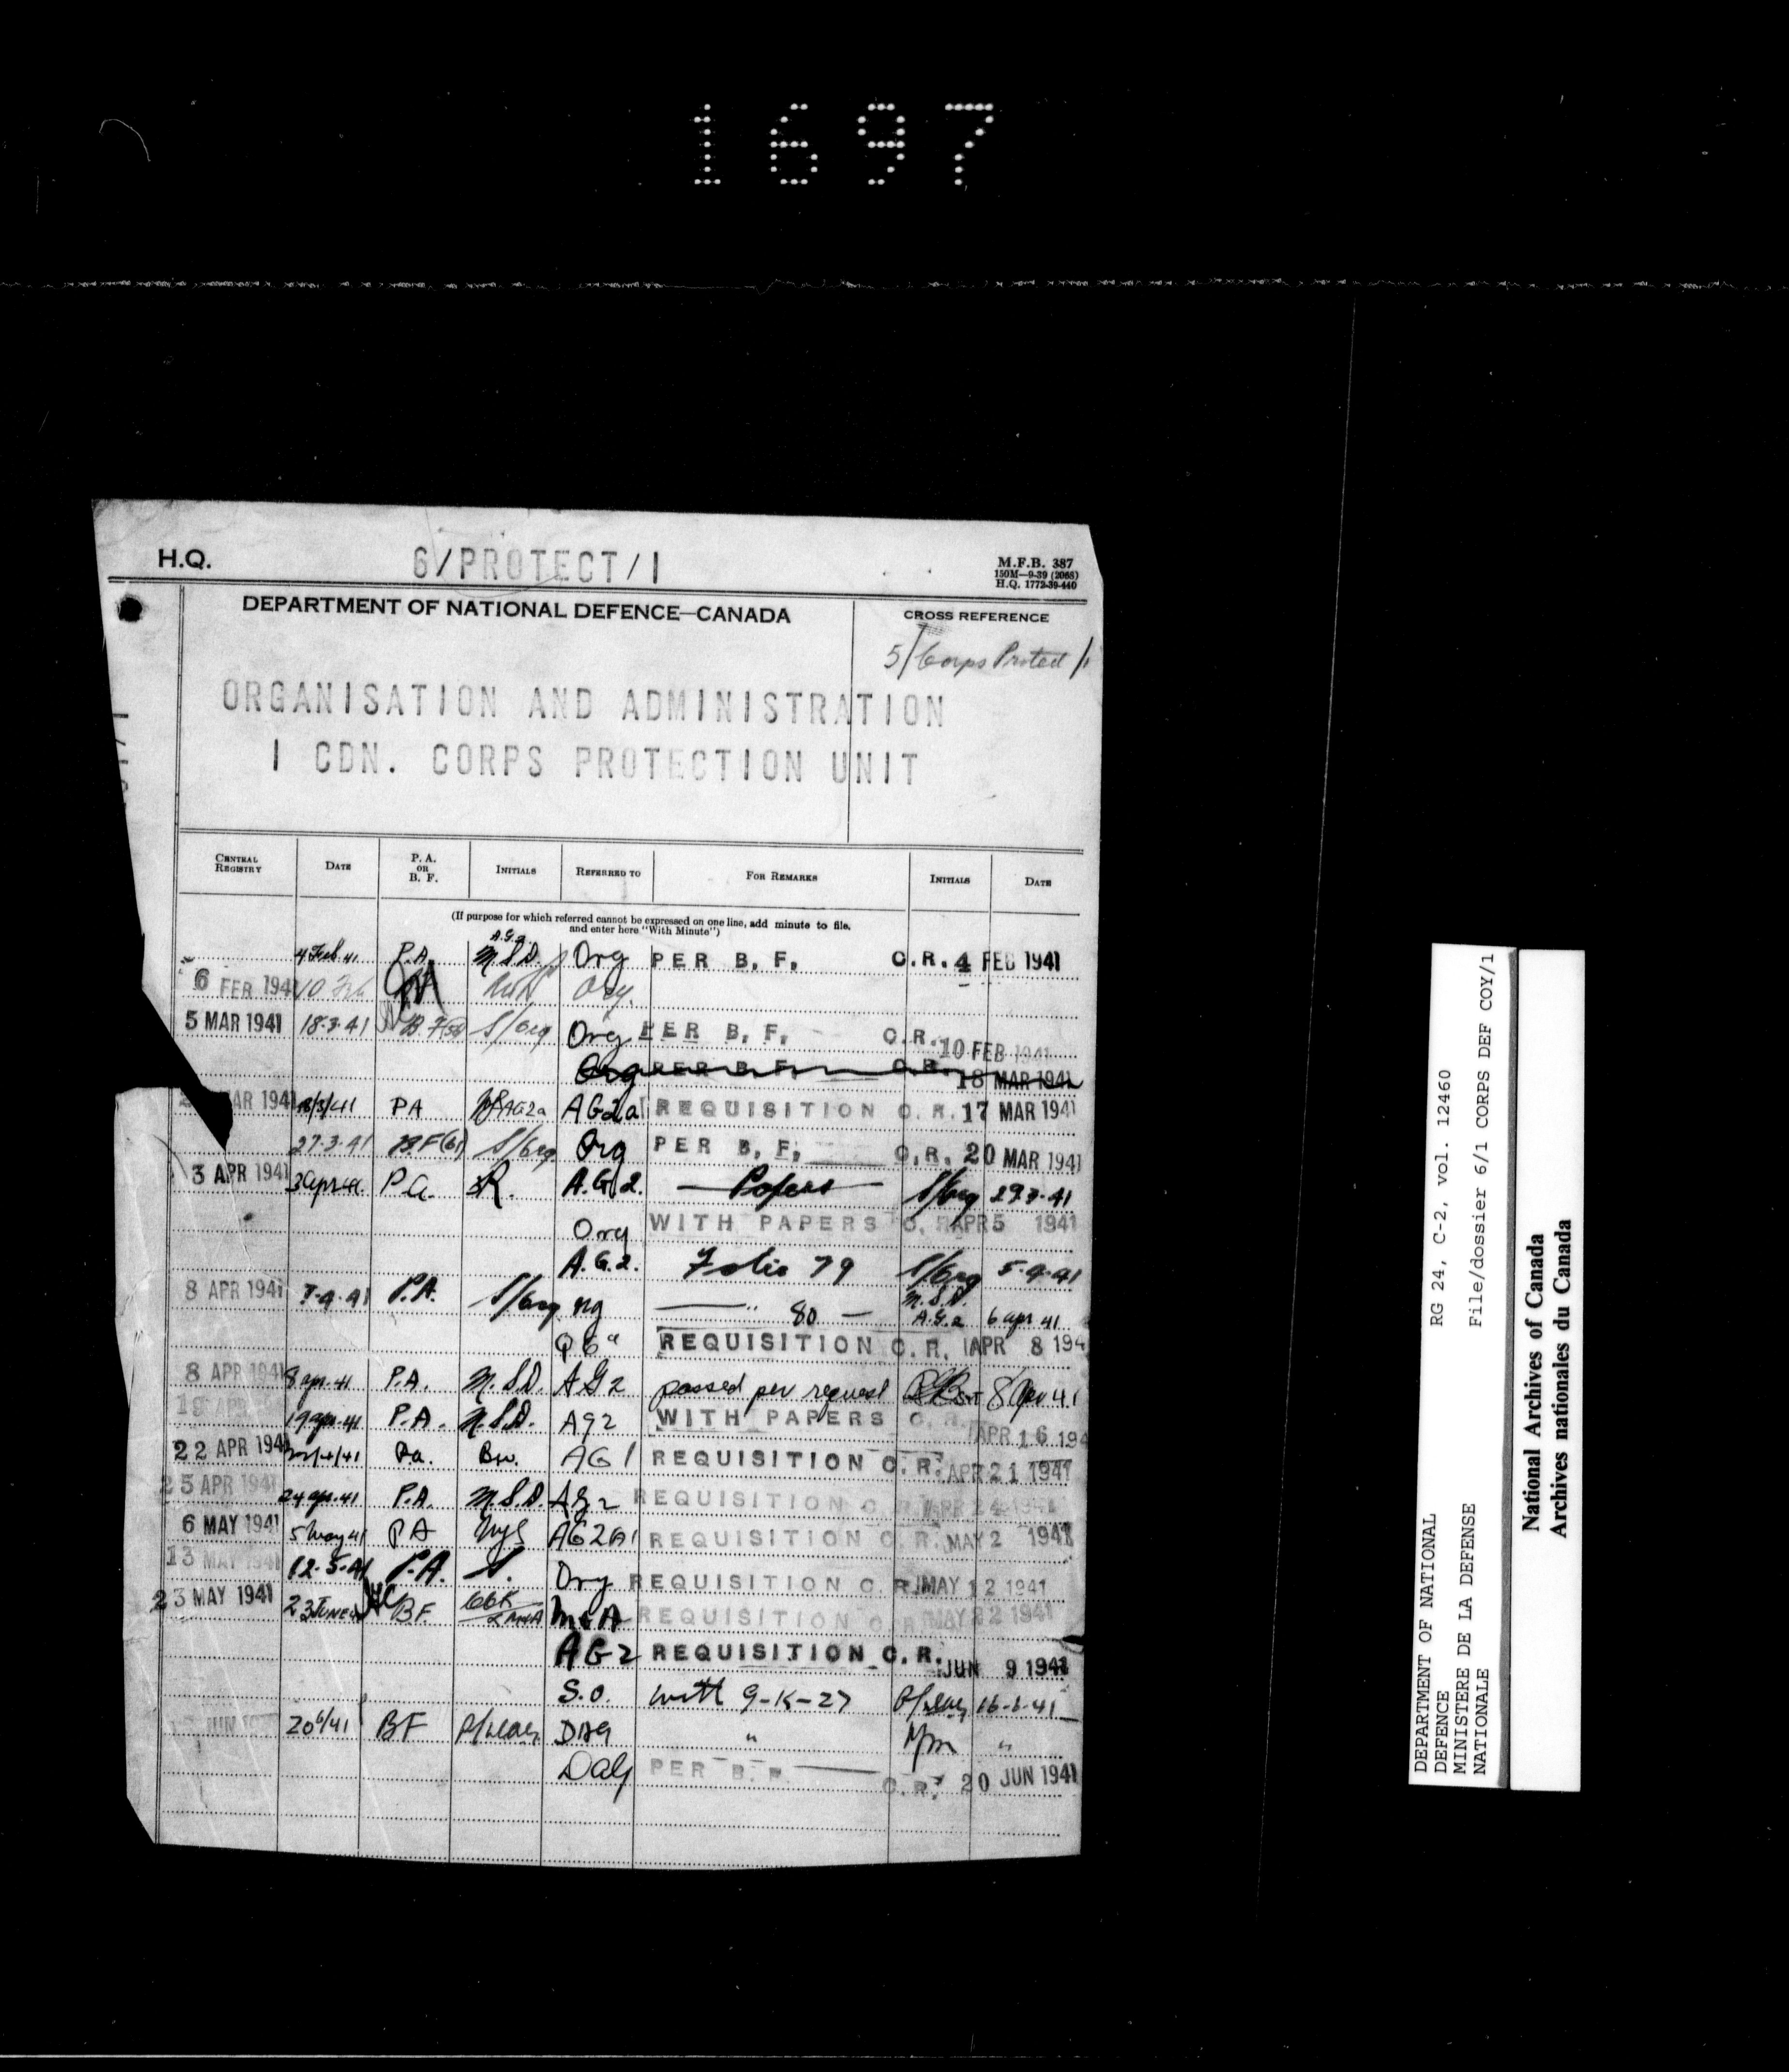 1697
H.Q. 6/PROTECT/1 M.F.B. 387
150M—9-39 (2068)
H.Q. 1772-39-440
DEPARTMENT OF NATIONAL DEFENCE—CANADA
CROSS REFERENCE
5/Corps Protect/1
ORGANISATION AND ADMINISTRATION
1 CDN. CORPS PROTECTION UNIT
CENTRAL REGISTRY DATE P. A. OR B. F. INITIALS REFERRED TO FOR REMARKS INITIALS DATE
(If purpose for which referred cannot be expressed on one line, add minute to file,
and enter here "With Minute")
4 Feb. 41 P.A. M.S.D. A.G.2 Org PER B. F. C.R. 4 FEB 1941
6 FEB 1941 10 Feb Org.
5 MAR 1941 18.3.41 B.F. S/Org Org PER B. F. C.R. 10 FEB 1941
Org PER B. F. C.R. 18 MAR 1941
MAR 1941 18/3/41 PA AG2a AG2a REQUISITION C.R. 17 MAR 1941
27.3.41 B.F. (61) S/Org Org PER B. F. C.R. 20 MAR 1941
3 APR 1941 3 apr 41 P.a. R. A.G.2. Papers S/Org 29.3.41
Org WITH PAPERS C. R. APR 5 1941
A.G.2. Folio 79 S/Org 5.4.41
8 APR 1941 7.4.41 P.A. S/Org " 80 — M.S.D. A.G.2 6 apr 41
REQUISITION C.R. APR 8 194
8 APR 1941 8 apr. 41 P.A. M.S.D. AG2 passed per request 8 Apr 41
19 APR 19 apr. 41 P.A. M.S.D. AG2 WITH PAPERS C. R. APR 16 194
22 APR 1941 22/4/41 Pa. Bw. AG1 REQUISITION C.R. APR 21 1941
25 APR 1941 24 apr. 41 P.A. M.S.D. AG2 REQUISITION C.R. APR 24 1941
6 MAY 1941 5 May 41 PA AG2A1 REQUISITION C.R. MAY 2 1941
13 MAY 1941 12.5.41 P.A. S. Org REQUISITION C.R. MAY 12 1941
23 MAY 1941 23 JUNE 41 BF. M&A REQUISITION C.R. MAY 22 1941
AG2 REQUISITION C.R. JUN 9 1941
S.O. with 9-K-27 16-6-41
JUN 20/6/41 BF DAG " "
DAG PER B. F. C.R. 20 JUN 1941
DEPARTMENT OF NATIONAL
DEFENCE
MINISTERE DE LA DEFENSE
NATIONALE
RG 24, C-2, vol. 12460
File/dossier 6/1 CORPS DEF COY/1
National Archives of Canada
Archives nationales du Canada